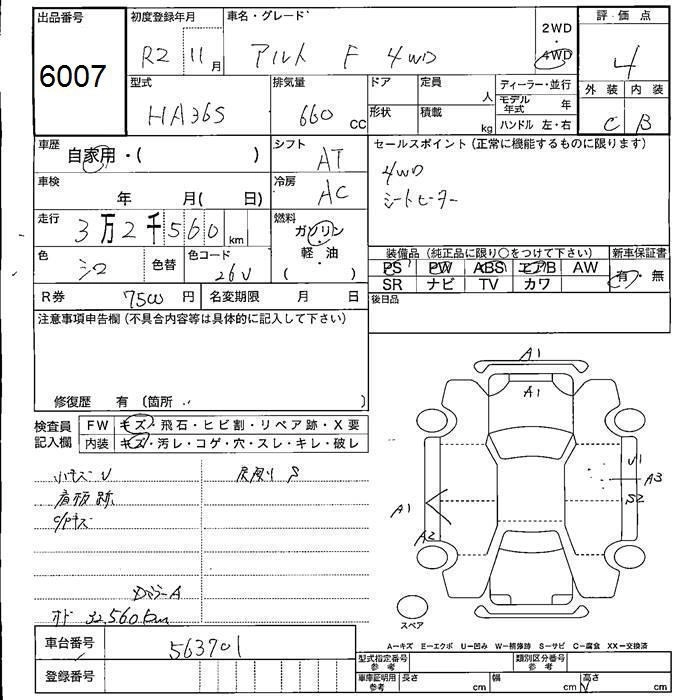 出品番号
6007
初度登録年月
R2 11 月
車名・グレード
アルト F 4WD
2WD
・
4WD
評価点
4
型式
HA36S
排気量
660 cc
ドア
形状
定員
人
積載
kg
ディーラー・並行
モデル年式 年
ハンドル 左・右
外装 内装
C B
車歴
自家用・( )
シフト
AT
車検
年 月( 日)
冷房
AC
走行
3万2千560 km
燃料
ガソリン
・
軽・油
( )
色
シロ
色替
色コード
26V
R券 7500 円
名変期限 月 日
セールスポイント(正常に機能するものに限ります)
4WD
シートヒーター
装備品(純正品に限り○をつけて下さい)
PS PW ABS エアB AW
SR ナビ TV カワ
新車保証書
有・無
後日品
注意事項申告欄(不具合内容等は具体的に記入して下さい)
修復歴 有 (箇所 )
検査員
記入欄
FW キズ・飛石・ヒビ割・リペア跡・X要
内装 キズ・汚レ・コゲ・穴・スレ・キレ・破レ
小キズ U
看板跡
オド 32,560km
A1
A1
A1
A2
U1
A3
S2
スペア
A−キズ E−エクボ U−凹み W−補修跡 S−サビ C−腐食 XX−交換済
車台番号
563701
登録番号
型式指定番号
参考
類別区分番号
参考
車庫証明用
参考
長さ
cm
幅
cm
高さ
cm